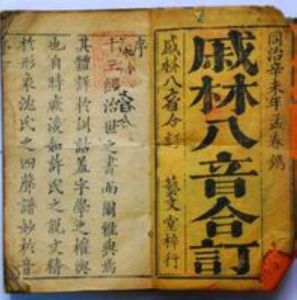 同治辛未年孟春鐫
戚林八音合訂
戚林八音合訂
藝文堂梓行
序
十三經治世之書而爾雅典焉
其體釋於訓詁蓋字學之權輿
也自時厥後如許氏之說文精
於形象沈氏之四聲譜妙於音